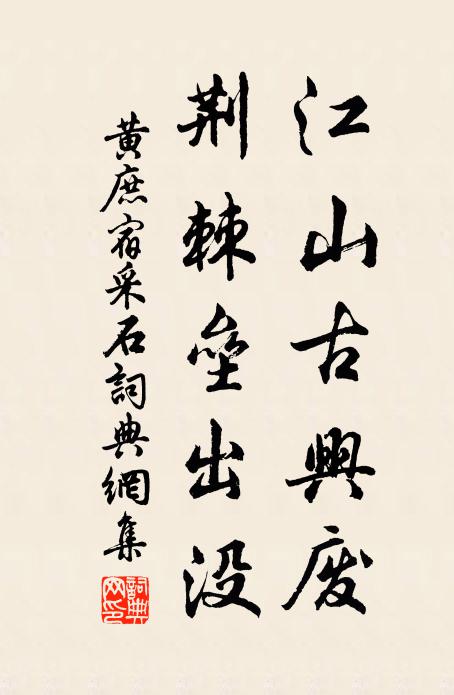 江山古興废
荆棘垒出没
黄庶宿采石詞典網集
詞典网印